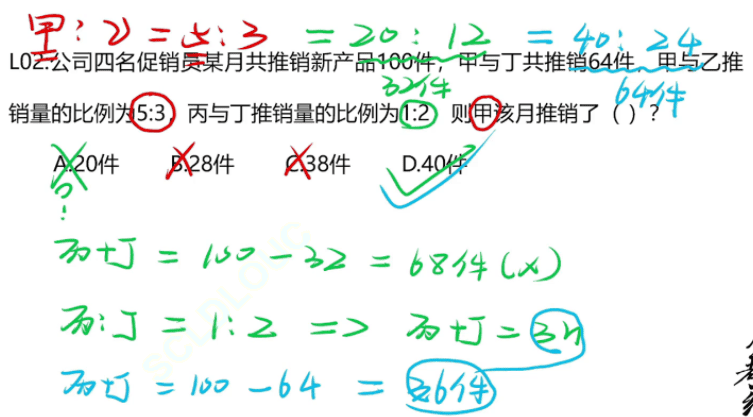 甲:乙=5:3 =20:12 =40:24
L02.公司四名促销员某月共推销新产品100件，甲与丁共推销64件，甲与乙推
32件 64件
销量的比例为5:3，丙与丁推销量的比例为1:2，则甲该月推销了（ ）？
A.20件 B.28件 C.38件 D.40件
?
丙+丁=100-32=68件(×)
丙:丁=1:2 => 丙+丁=3n
丙+丁=100-64 =36件